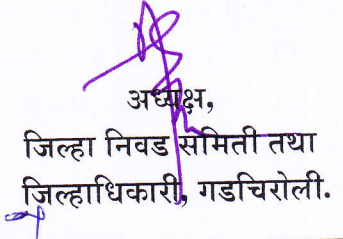 अध्यक्ष,
जिल्हा निवड समिती तथा
जिल्हाधिकारी, गडचिरोली.